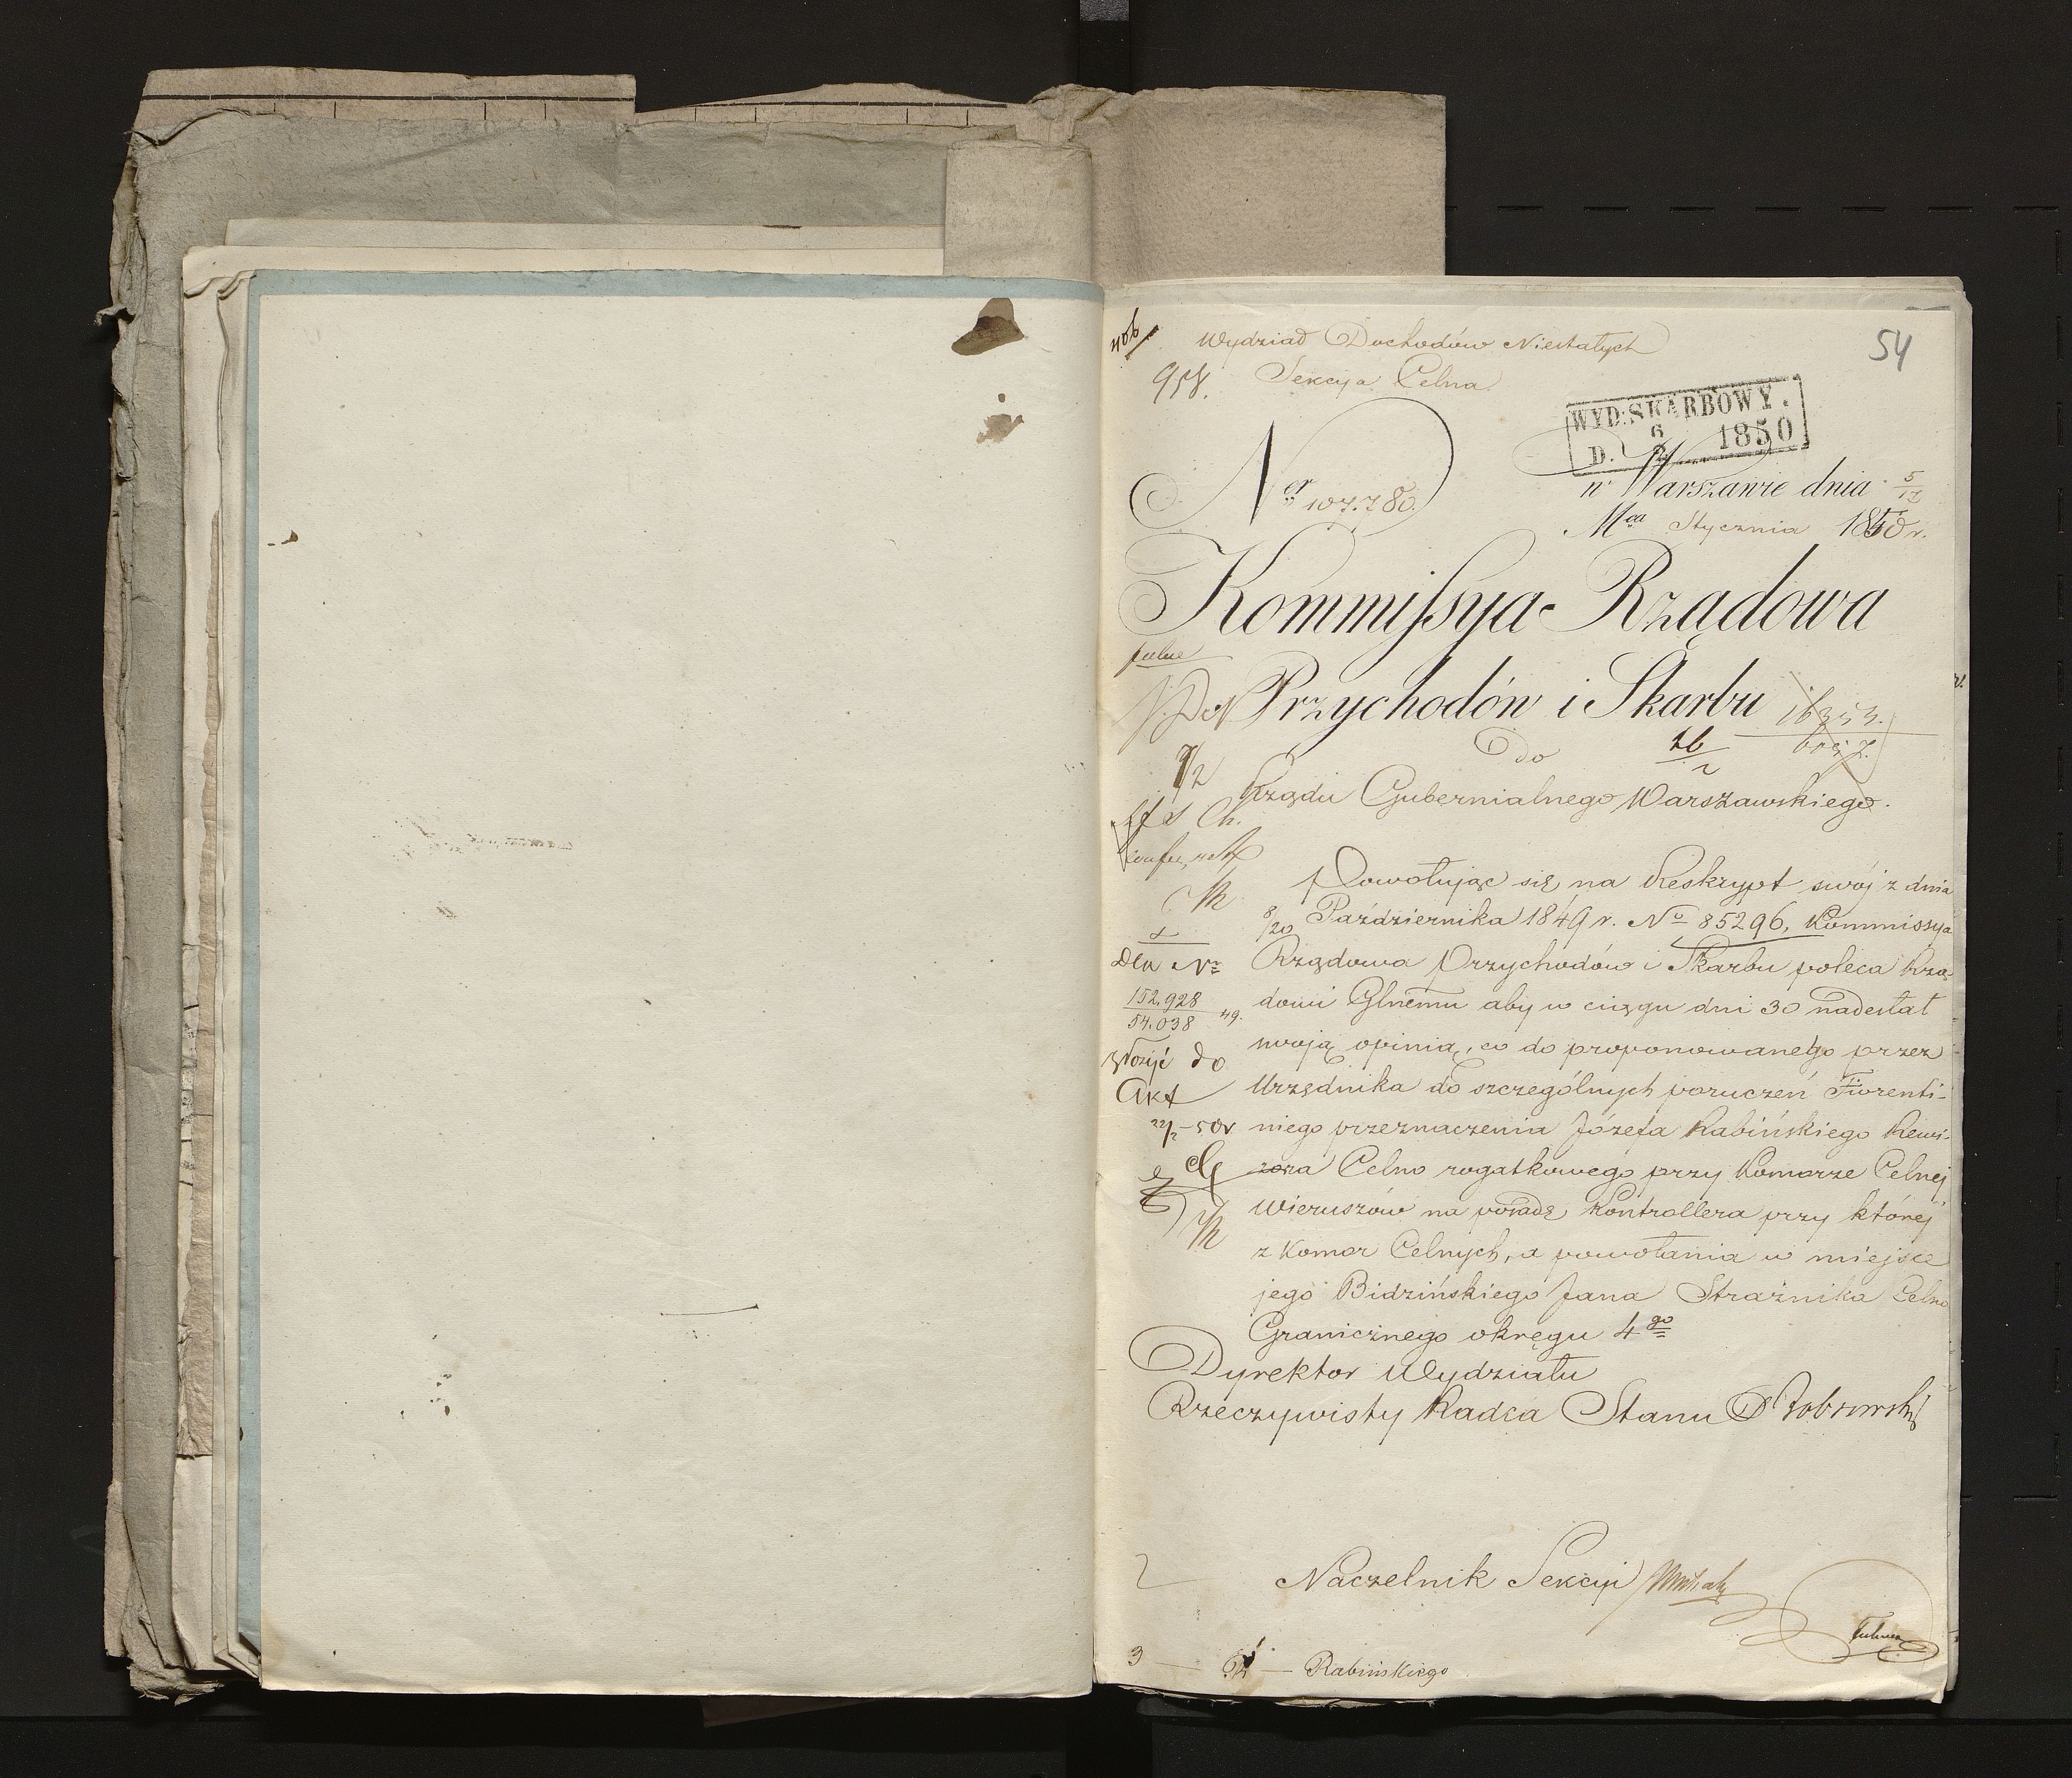 Wydział Dochodów Niestałych
54
958.
Sekcya Celna
WYD: SKARBOWY.
D. 6 1850
Ner 107.780.
w Warszawie dnia 5/17
Mca Stycznia 1850 r.
Kommissya Rządowa
Przychodów i Skarbu
Do
Rządu Gubernialnego Warszawskiego.
Powołując się na Reskrypt swój z dnia
8/20 Października 1849 r. No 85296, Kommissya
Rządowa Przychodów i Skarbu poleca Rzą-
dowi Glnemu aby w ciągu dni 30 nadesłał
swoją opinią, co do proponowanego przez
Urzędnika do szczególnych poruczeń Fiorenti-
niego przeznaczenia Józefa Rabińskiego Rewi-
zora Celno rogatkowego przy Komorze Celnej
Wieruszów na posadę Kontrollera przy której
z Komor Celnych, a powołania w miejsce
jego Bidzińskiego Jana Strażnika Celno
Granicznego okręgu 4go
Dyrektor Wydziału
Rzeczywisty Radca Stanu
Dla Nr
152.928
54.038 49.
złożyć do
Akt
22/2 - 50 r
Naczelnik Sekcyi
3 — — Rabińskiego